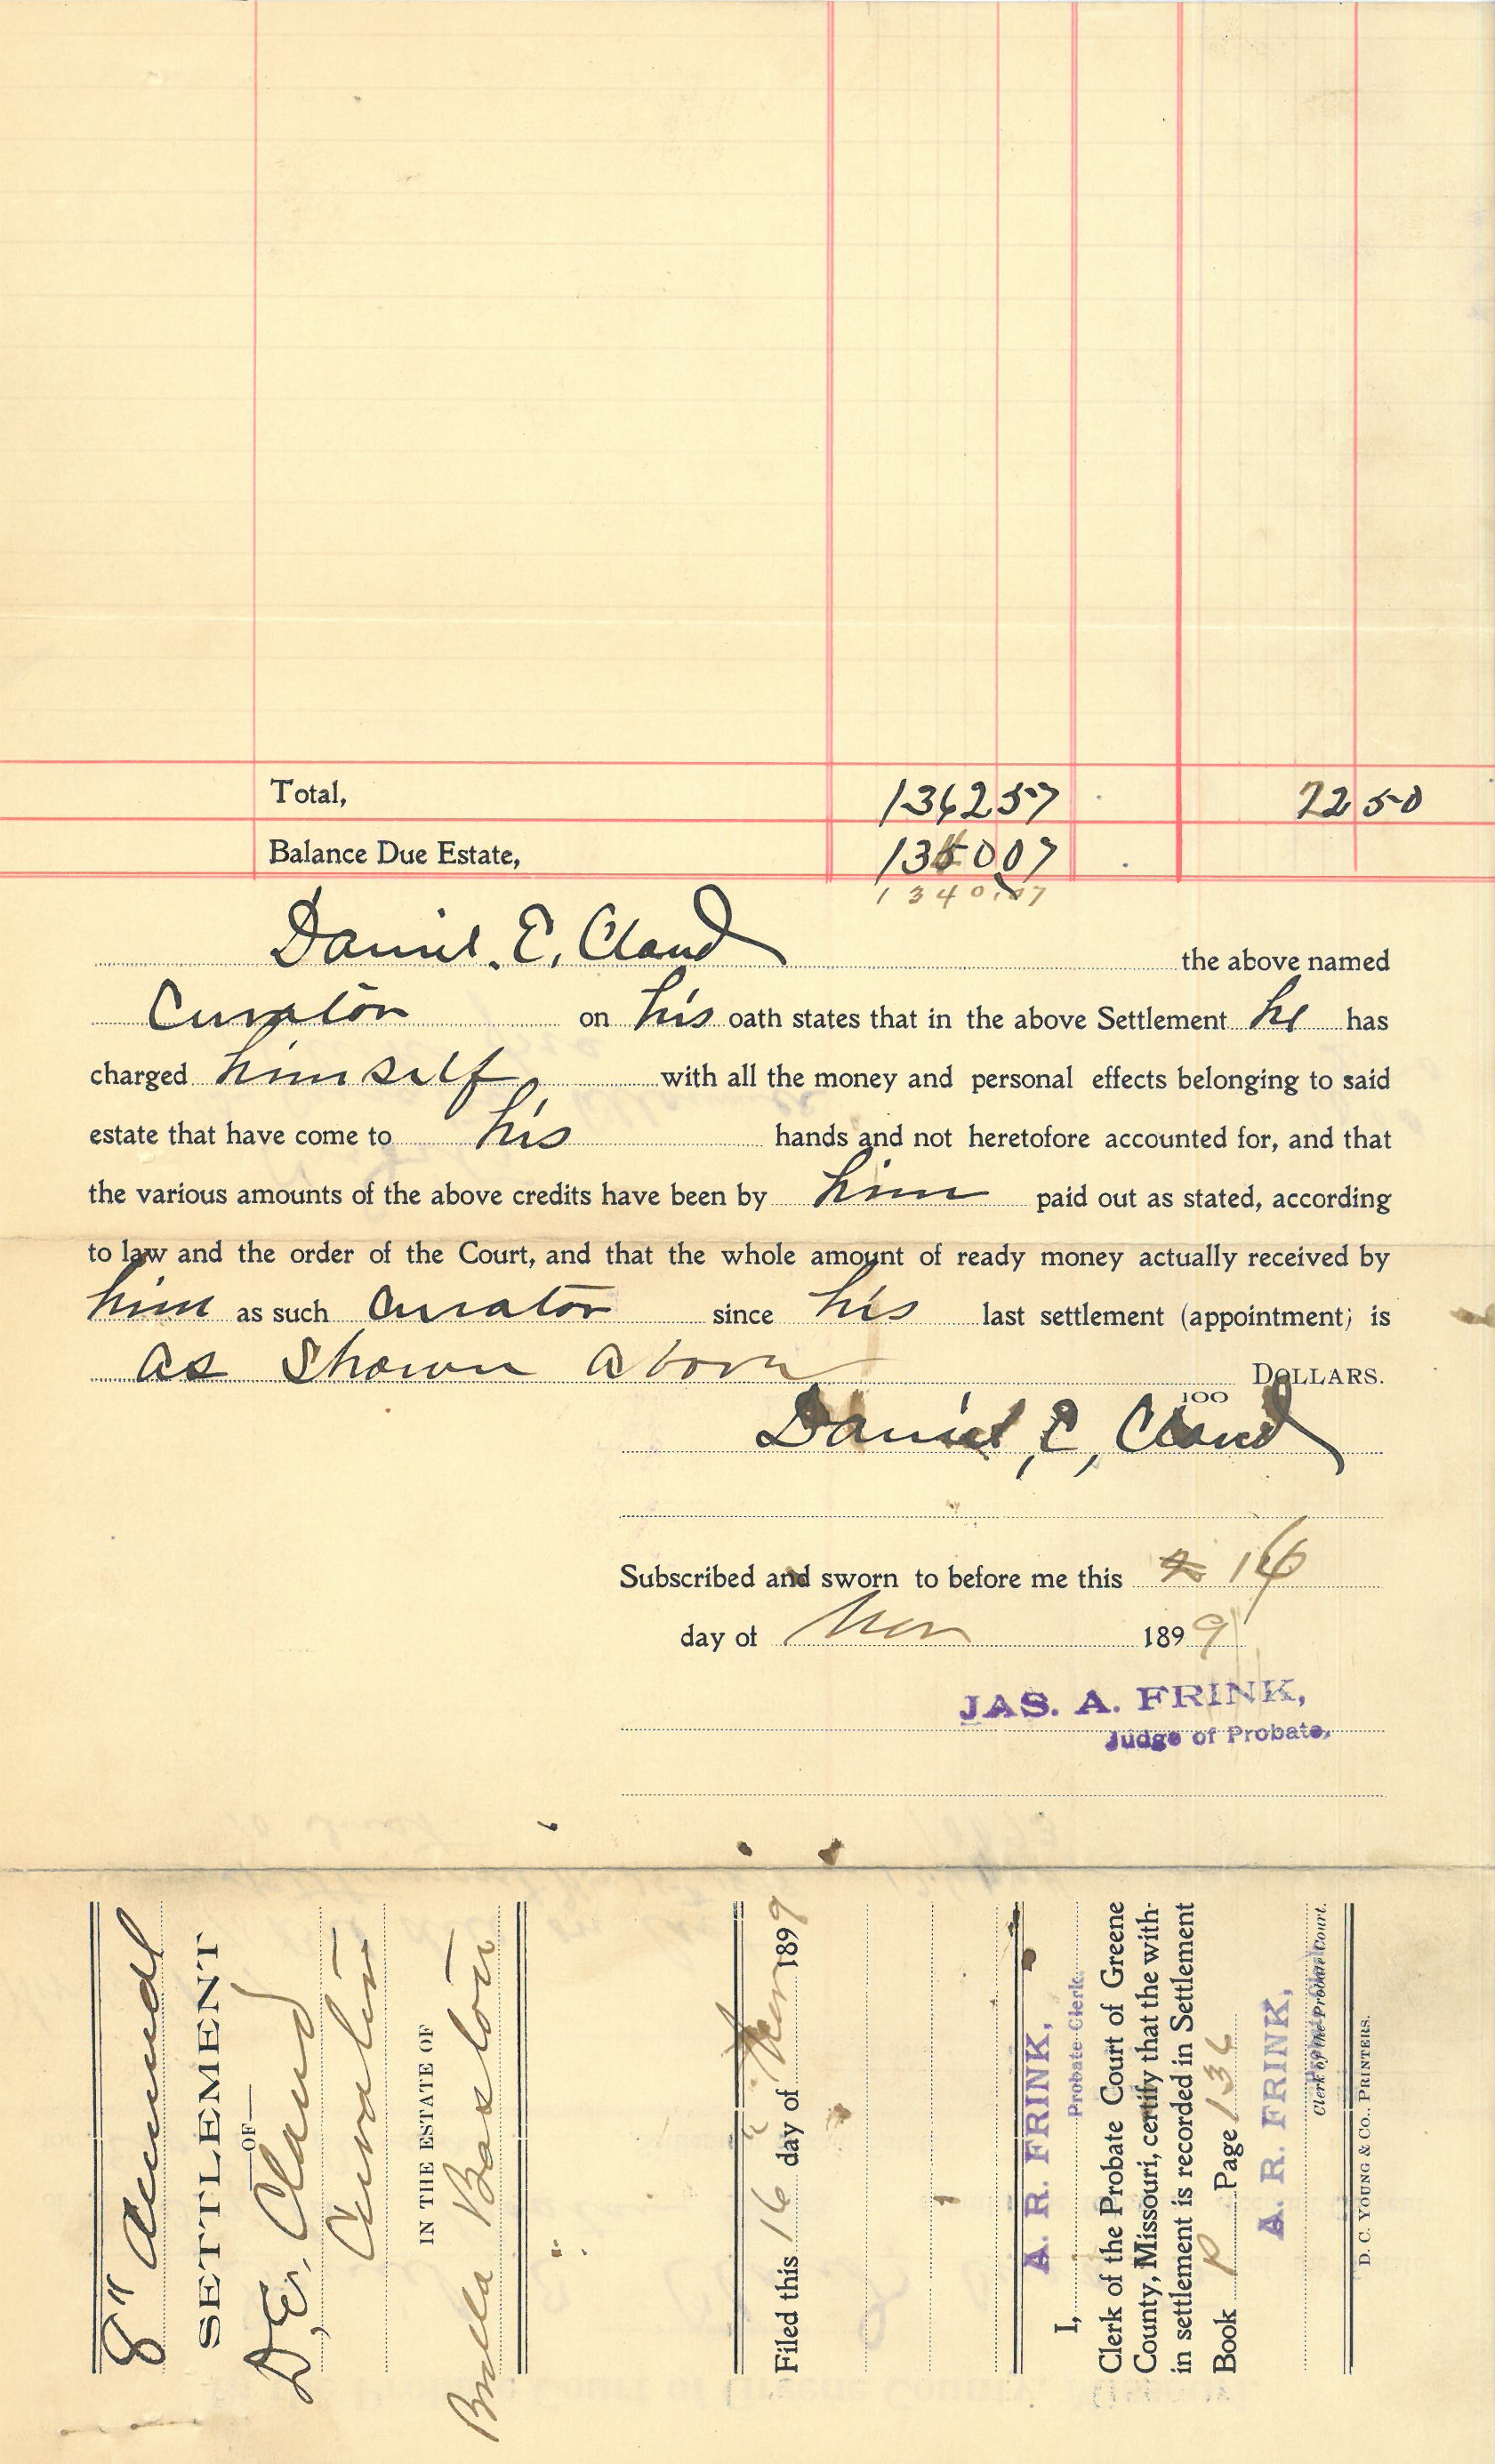 Total, 1362 57 22 50
Balance Due Estate, 13 0 07
1340.07
Daniel. E. Claud the above named
Curator on his oath states that in the above Settlement he has
charged himself with all the money and personal effects belonging to said
estate that have come to his hands and not heretofore accounted for, and that
the various amounts of the above credits have been by him paid out as stated, according
to law and the order of the Court, and that the whole amount of ready money actually received by
him as such Curator since his last settlement (appointment; is
as Shown above DOLLARS.
100
Daniel, E, Claud
Subscribed and sworn to before me this 16
day of Nov 1899
JAS. A. FRINK,
Judge of Probate.
8" Annual
SETTLEMENT
—OF—
D. E. Claud
Curator
IN THE ESTATE OF
Barton
Filed this 16" day of Nov 1899
A. R. FRINK,
I, Probate Clerk
Clerk of the Probate Court of Greene
County, Missouri, certify that the with-
in settlement is recorded in Settlement
Book P Page 136
A. R. FRINK,
Clerk of the Probate Court.
D. C. YOUNG & CO., PRINTERS.